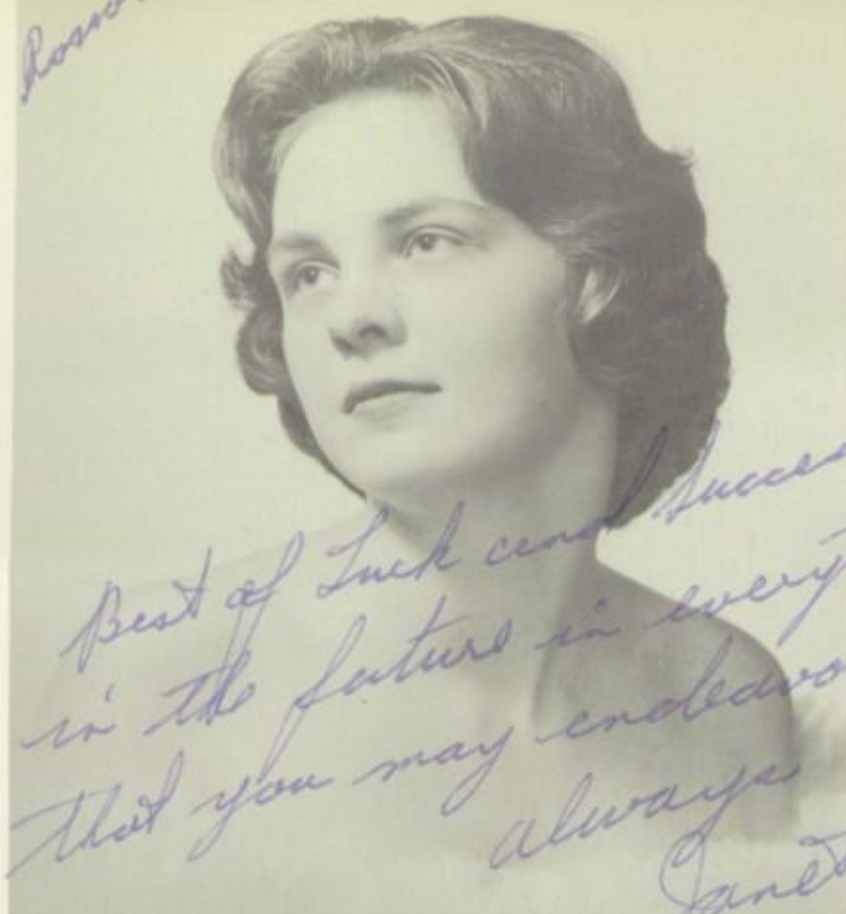 Best of Luck and Succes
in the future in every
that you may endeavo
always
Janet